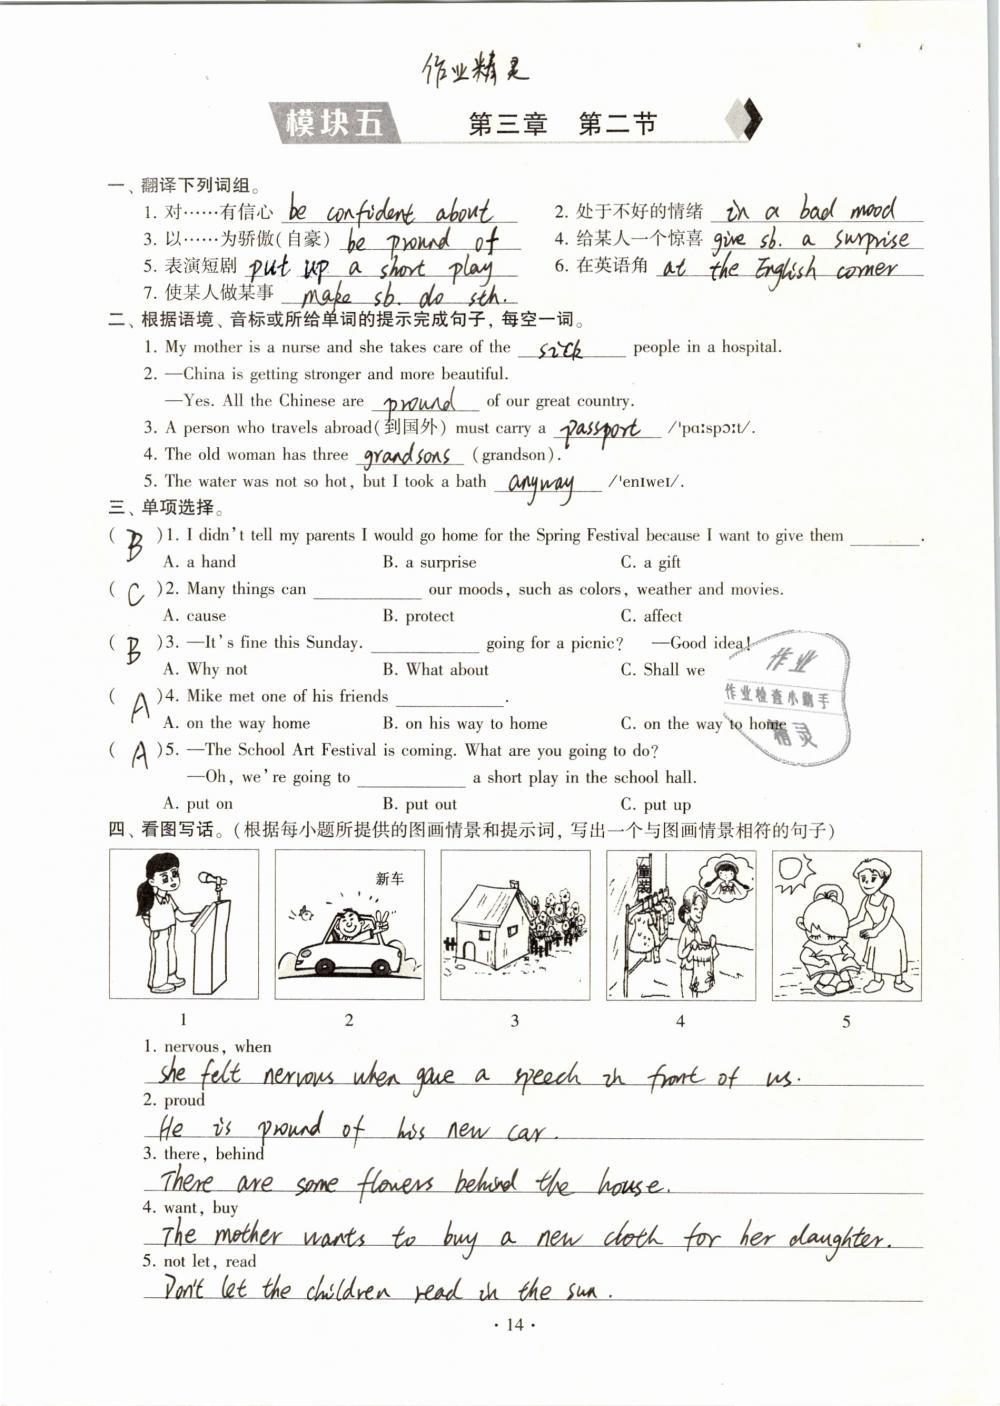 作业精灵
模块五 第三章 第二节
一、翻译下列词组。
1. 对……有信心 be confident about 2. 处于不好的情绪 in a bad mood
3. 以……为骄傲(自豪) be pround of 4. 给某人一个惊喜 give sb. a surprise
5. 表演短剧 put up a short play 6. 在英语角 at the English corner
7. 使某人做某事 make sb. do sth.
二、根据语境、音标或所给单词的提示完成句子，每空一词。
1. My mother is a nurse and she takes care of the sick people in a hospital.
2. —China is getting stronger and more beautiful.
—Yes. All the Chinese are pround of our great country.
3. A person who travels abroad(到国外) must carry a passport /'pɑːspɔːt/.
4. The old woman has three grandsons (grandson).
5. The water was not so hot, but I took a bath anyway /'enɪweɪ/.
三、单项选择。
( B )1. I didn't tell my parents I would go home for the Spring Festival because I want to give them ________.
A. a hand B. a surprise C. a gift
( C )2. Many things can ________ our moods, such as colors, weather and movies.
A. cause B. protect C. affect
( B )3. —It's fine this Sunday. ________ going for a picnic? —Good idea!
A. Why not B. What about C. Shall we
( A )4. Mike met one of his friends ________.
A. on the way home B. on his way to home C. on the way to home
( A )5. —The School Art Festival is coming. What are you going to do?
—Oh, we're going to ________ a short play in the school hall.
A. put on B. put out C. put up
作业
作业检查小助手
精灵
四、看图写话。(根据每小题所提供的图画情景和提示词，写出一个与图画情景相符的句子)
新车
童装
1 2 3 4 5
1. nervous, when
She felt nervous when gave a speech in front of us.
2. proud
He is pround of his new car.
3. there, behind
There are some flowers behind the house.
4. want, buy
The mother wants to buy a new cloth for her daughter.
5. not let, read
Don't let the children read in the sun.
· 14 ·